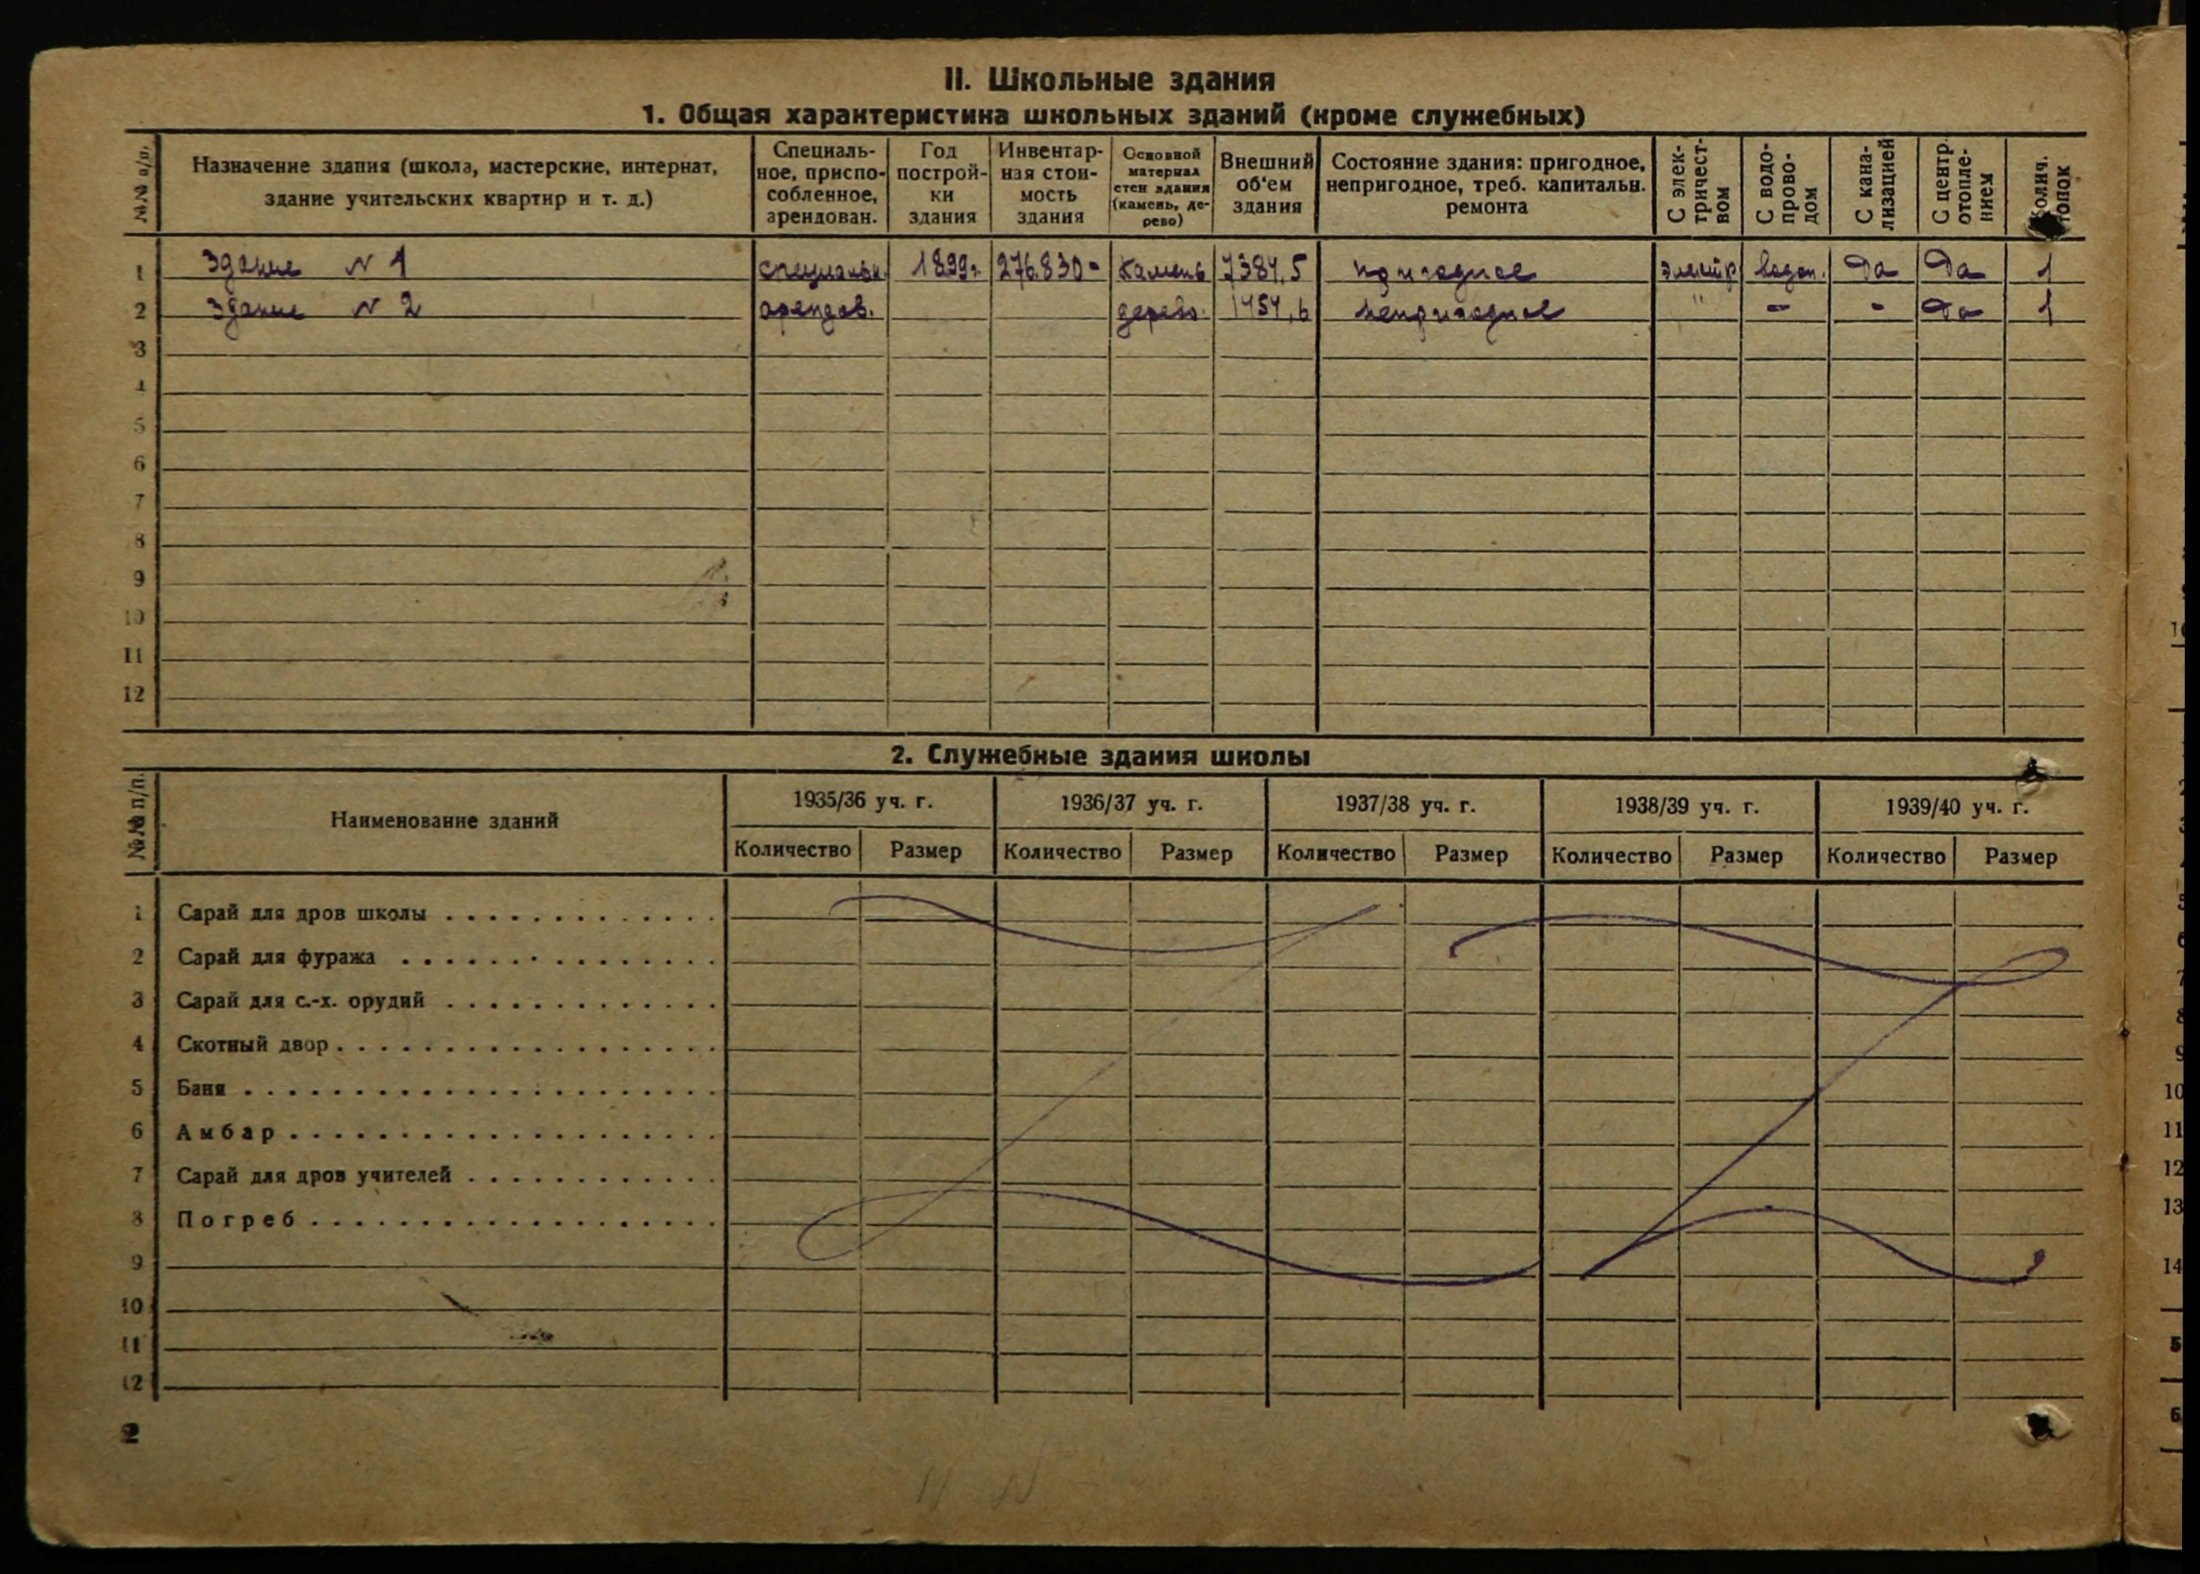 II. Школьные здания
1. Общая характеристика школьных зданий (кроме служебных)
№№ п/п. Назначение здания (школа, мастерские, интернат, здание учительских квартир и т. д.) Специальное, приспособленное, арендован. Год постройки здания Инвентарная стоимость здания Основной материал стен здания (камень, дерево) Внешний об'ем здания Состояние здания: пригодное, непригодное, треб. капитальн. ремонта С электричеством С водопроводом С канализацией С центр. отоплением Колич. топок
1 Здание N 1 специальн. 1899 г. 276.830- камень 7384,5 пригодное электр водоп. Да Да 1
2 Здание N 2 арендов. дерево. 1454,6 непригодное " - - Да 1
3
4
5
6
7
8
9
10
11
12
2. Служебные здания школы
№№ п/п. Наименование зданий 1935/36 уч. г. 1936/37 уч. г. 1937/38 уч. г. 1938/39 уч. г. 1939/40 уч. г.
Количество Размер Количество Размер Количество Размер Количество Размер Количество Размер
1 Сарай для дров школы
2 Сарай для фуража
3 Сарай для с.-х. орудий
4 Скотный двор
5 Баня
6 Амбар
7 Сарай для дров учителей
8 Погреб
9
10
11
12
2